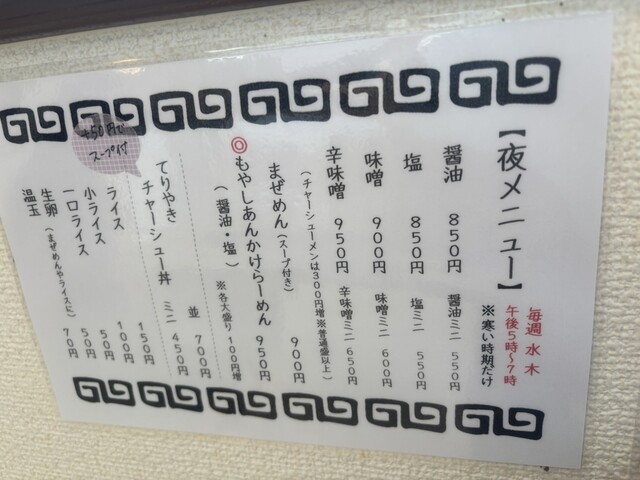 【夜メニュー】
毎週 水 木
午後5時〜7時
※寒い時期だけ
醤油 850円 醤油ミニ 550円
塩 850円 塩ミニ 550円
味噌 900円 味噌ミニ 600円
辛味噌 950円 辛味噌ミニ 650円
(チャーシューメンは300円増※普通盛以上)
まぜめん(スープ付き) 900円
◎もやしあんかけらーめん 950円
(醤油・塩) ※各大盛り 100円増
てりやきチャーシュー丼 並 700円
ミニ 450円
+50円で
スープ付
ライス 150円
小ライス 100円
一口ライス 50円
生卵(まぜめんやライスに) 50円
温玉 70円